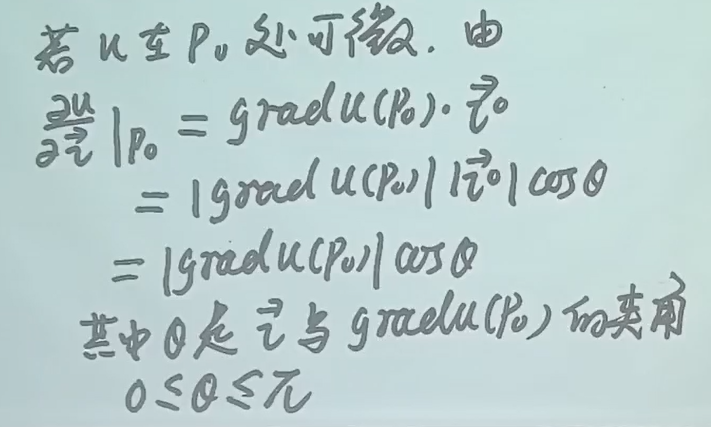 若 u 在 P₀ 处可微. 由
∂u/∂l⃗ |P₀ = gradu(P₀)·l⃗⁰
= |gradu(P₀)| |l⃗⁰| cosθ
= |gradu(P₀)| cosθ
其中 θ 是 l⃗ 与 gradu(P₀) 的夹角
0≤θ≤π